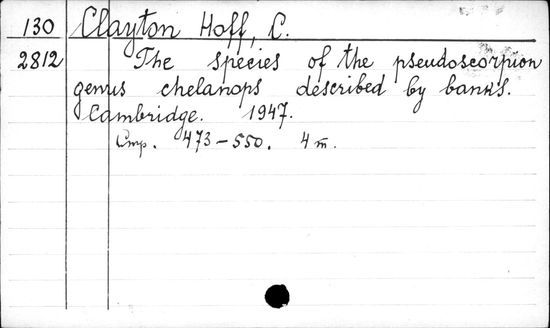 130 Clayton Hoff, C.
2812 The species of the pseudoscorpion
genus chelanops described by banks.
Cambridge. 1947.
Стр. 473–550. 4 т.